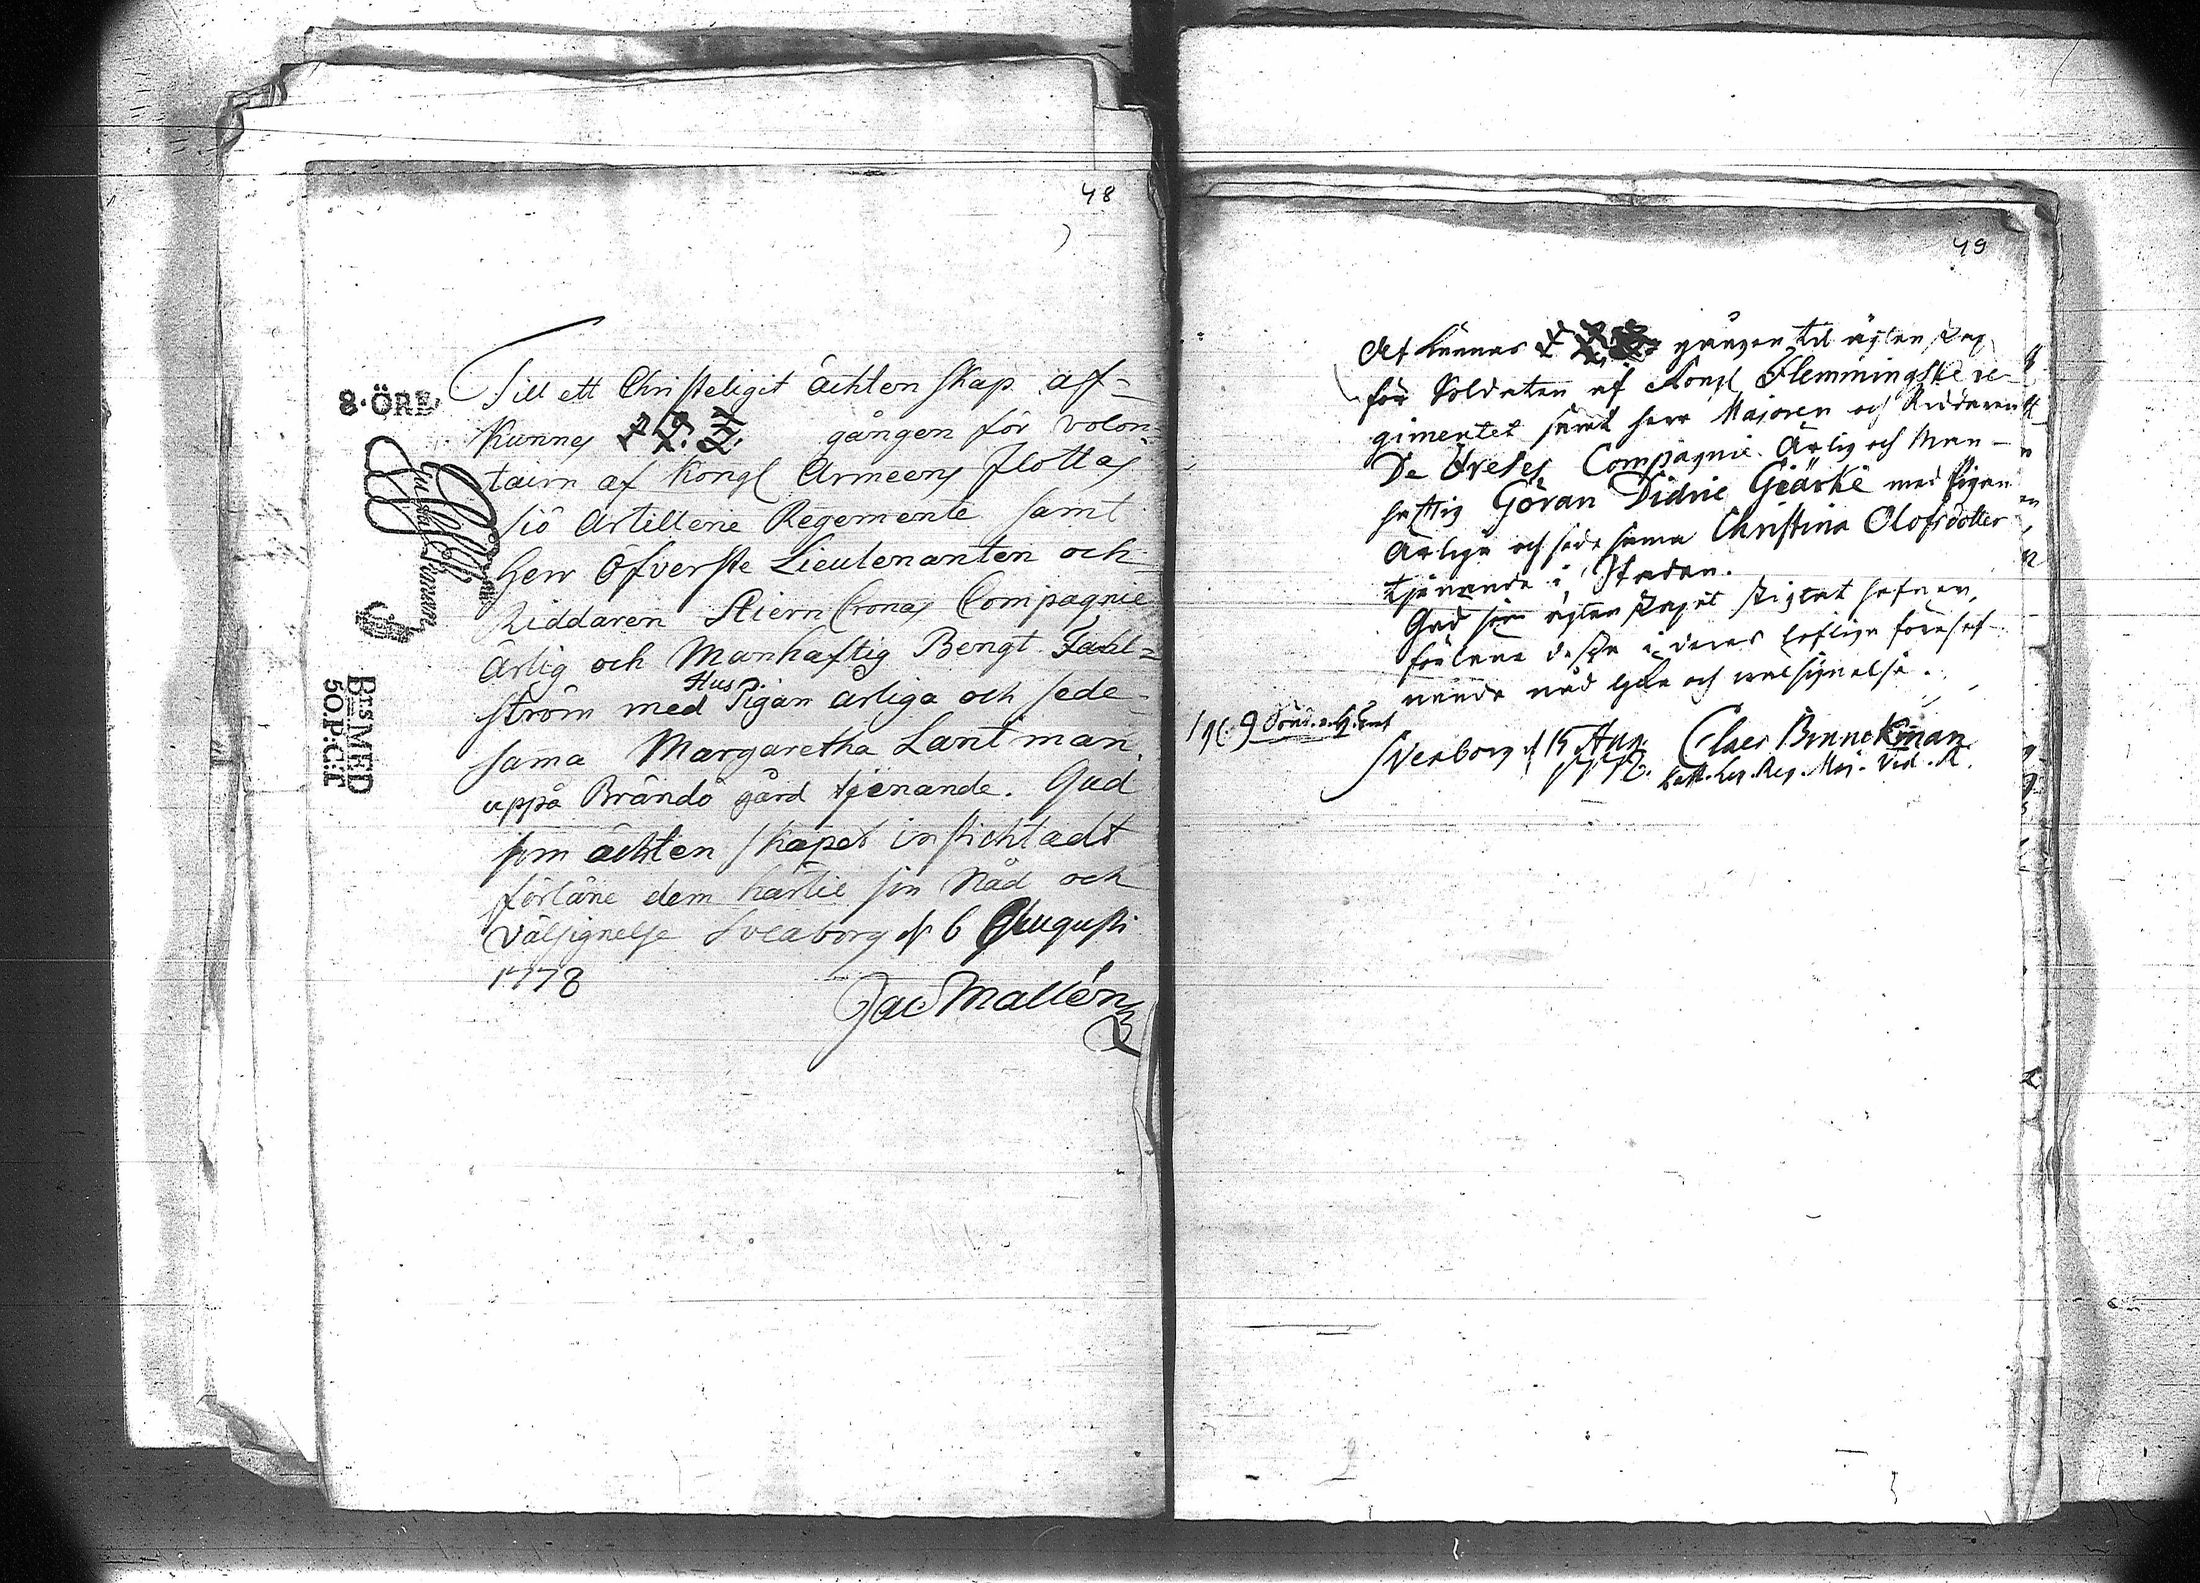 48
8·ÖRE
BtsMED
50.P:C:T
Till ett Christeligit ächtenskap af=
kunnes 1. 2. 3. gången för volon=
tairn af Kongl Armeens flottas
siö Artillerie Regemente samt
herr Öfverste Lieutenanten och
Riddaren StiernCronas Compagnie
ärlig och Manhaftig Bengt Fahl=
ström med Hus Pigan ärliga och sede=
sama Margaretha Lantman
uppå Brändö gård tjenande. Gud
som ächtenskapet instichtadt
förläne dem härtil sin Nåd och
välsignelse Sveaborg d 6 Augusti
1778
Jac Mallén
49
Af kunnas gången til ägtenskap
för Soldaten af Kongl Flemmingske re-
gimentet samt herr Majoren och Riddaren
De Breses Compagnie. Ärlig och Man-
haftig Göran Didric Giärke med Pigan
Ärliga och sedesamma Christina Olofsdotter
tjenande i Staden.
Gud som ägtenskapet stigtat hafver,
förläne dessa i deras loflige företag
nåd och velsignelse.
Sveaborg d 15 Aug. Claes Brunckman
1778. Batt. Reg. Maj. Vid. R.